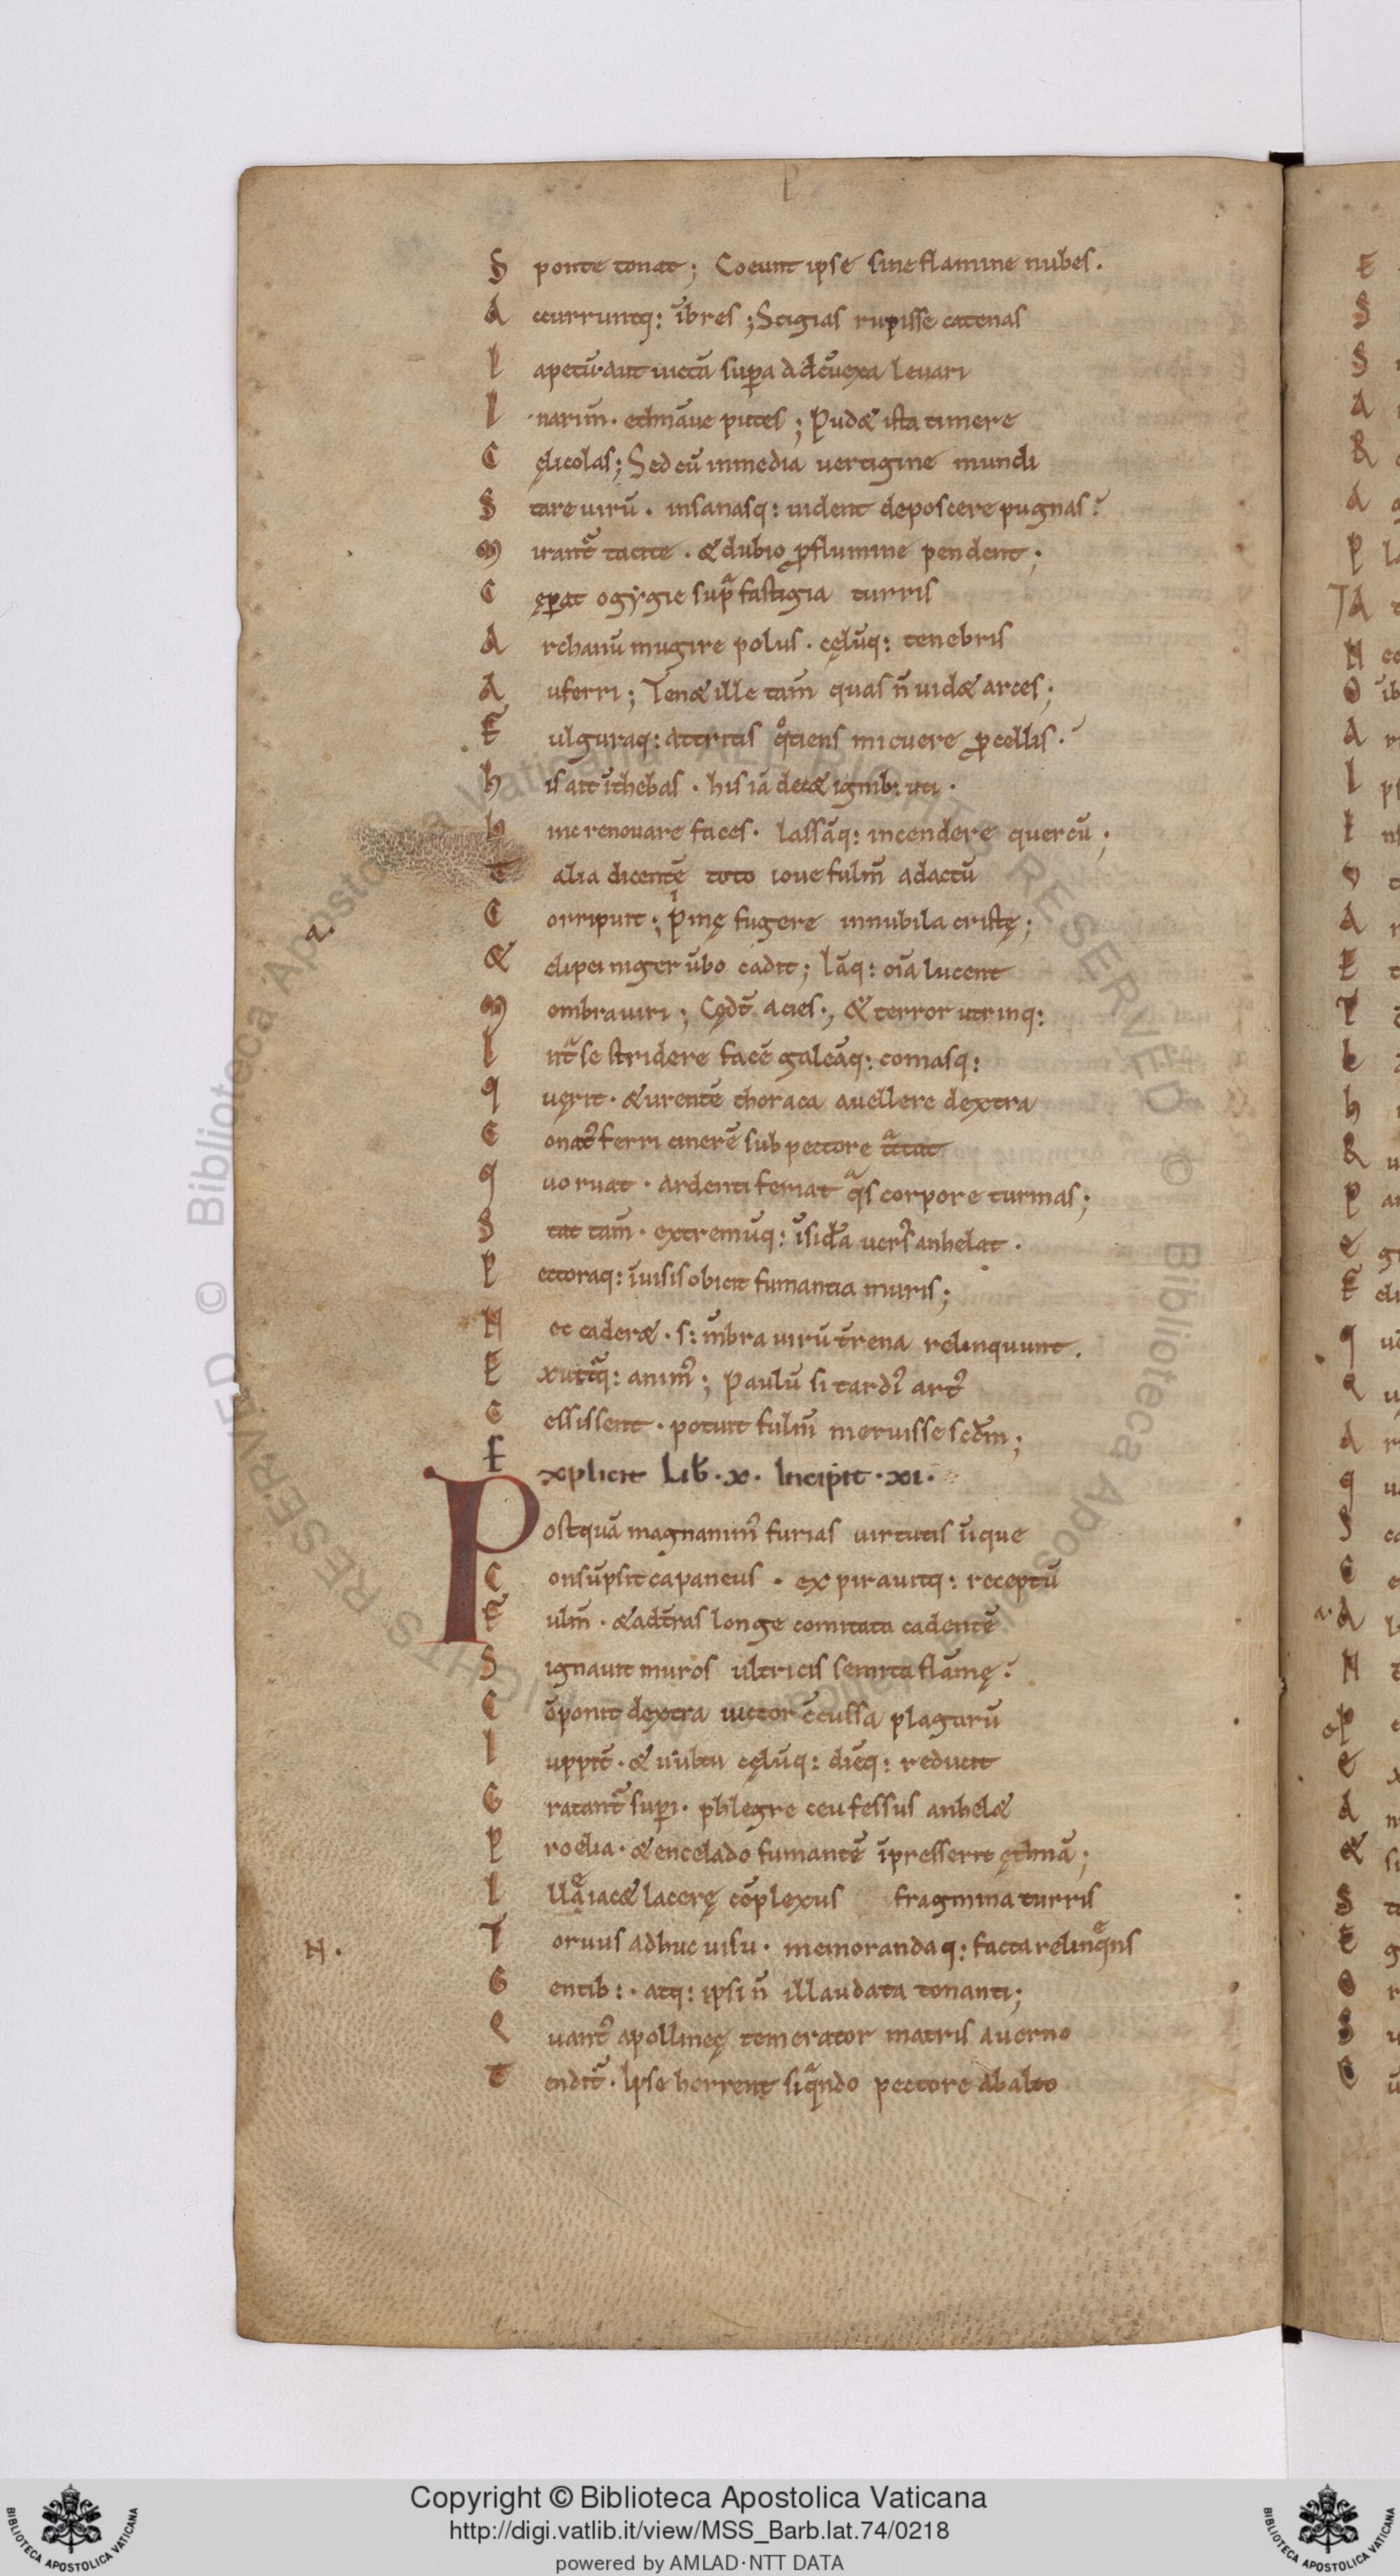 S ponte tonat; Coeunt ipse sine flamine nubes.
A ccurruntq: ībres; Stigias rupisse catenas
I apetū aut uictā supa ad dēuexa leuari
I narim̄. ethnāue putes; Pudæ ista timere
C ęlicolas; Sed cū in media uertigine mundi
S tare uirū. insanasq: uident deposcere pugnas?
M irant̄ tacite. & dubio ꝓ flumine pendent;
C ęꝑat ogẏgie supᵃ fastigia turris
A rchanū mugire polus. cęlūq: tenebris
A uferri; Tenæ ille tam̄ quas n̄ uidæ arces;
F ulguraq: attritis qͦtiens micuere ꝓcellis.
h is ait ī thebas. his iā decæ ignib: uti.
h inc renouare faces. lassāq: incendere quercū;
T alia dicentē toto ioue fulm̄ adactū
C orripuit; Pⁱmę fugere in nubila cristę;
& clipei niger ūbo cadit; Iāq: oīa lucent
M ombra uiri; Cędt̄ acies; & terror utrinq:
I ntᵃ se stridere facē galeāq: comasq:
q uęrit. & urentē thoraca auellere dextra
C onat᷒ ferri cinerē sub pectore tᵃctat
q uo ruat. ardenti feriat qᵃs corpore turmas;
S tat tam̄. extremūq: ī sidēa uers᷒ anhelat.
P ectoraq: īuisis obicit fumantia muris;
N ec caderæ. s: m̄bra uirū t̄rena relinquunt.
E xuitᵃq: anim᷒; Paulū si tardi᷒ art᷒
C essissent. potuit fulm̄ meruisse scd̄m;
E xplicit Lib̄. x. Incipit. xi.
P ostquā magnanim᷒ furias uirtutis īique
C onsūpsit capaneus. expirauitq: receptū
F ulm̄. & ad t̄ras longe comitata cadentē
S ignauit muros ultricis semita flāmę?
C ōponit dextra uictor cōcussa plagarū
I uppit̄. & uultu cęlūq: diēq: reducit
G ratant̄ supi. phlegre ceu fessus anhelæ
P roelia. & encelado fumantē īpresserit ęthnā;
I lle iacæ lacerę cōplexus fragmina turris
N.
T oruus adhuc uisu. memorandaq: facta relinqᵉns
G entib:. atq: ipsi n̄ illaudata tonanti;
Q uant᷒ apollineę temerator matris auerno
T endit̄. Ipse horrent siqᵃndo pectore ab alto
a.
Copyright © Biblioteca Apostolica Vaticana
http://digi.vatlib.it/view/MSS_Barb.lat.74/0218
powered by AMLAD·NTT DATA